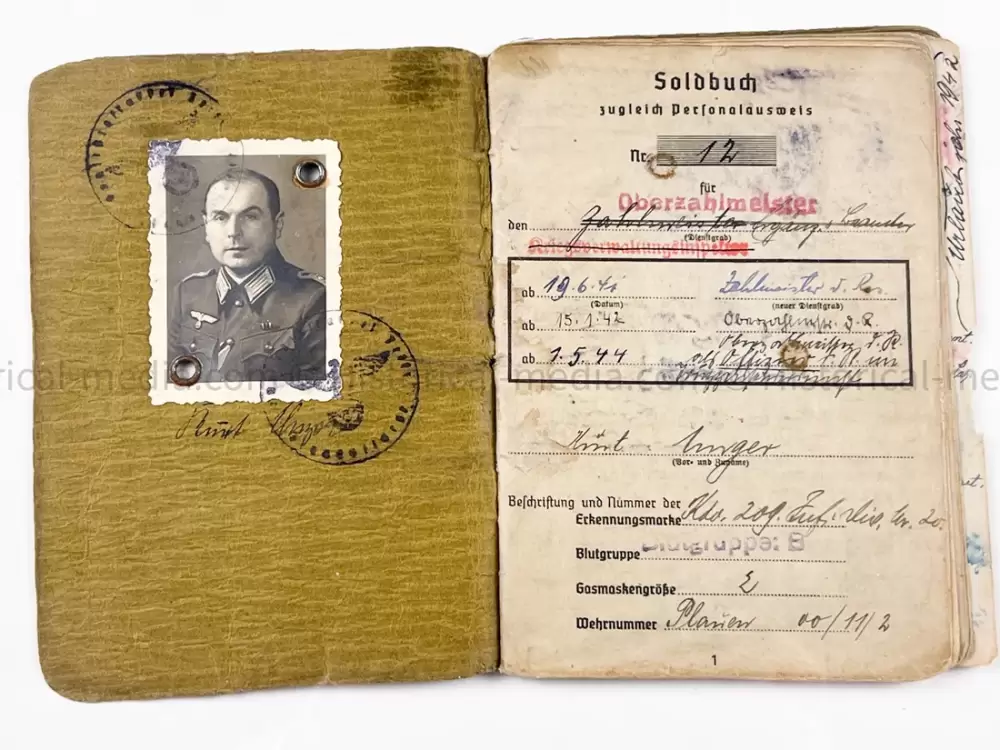 Kurt
Soldbuch
zugleich Personalausweis
Nr. 12
für
Oberzahlmeister
den Zahlmeister
(Dienstgrad)
Kriegsverwaltungsinspektor
ab 19.6.41 Zahlmeister d. Res.
(Datum) (neuer Dienstgrad)
ab 15.1.42 Oberzahlmstr. d. R.
ab 1.5.44 Oberzahlmeister d. R.
als Offizier d. R. im
Kurt Unger
(Vor- und Zuname)
Beschriftung und Nummer der
Erkennungsmarke Kdo. 209. Inf. Div. Nr. 20.
Blutgruppe Blutgruppe: B
Gasmaskengröße 2
Wehrnummer Plauen 00/11/2
1
1942